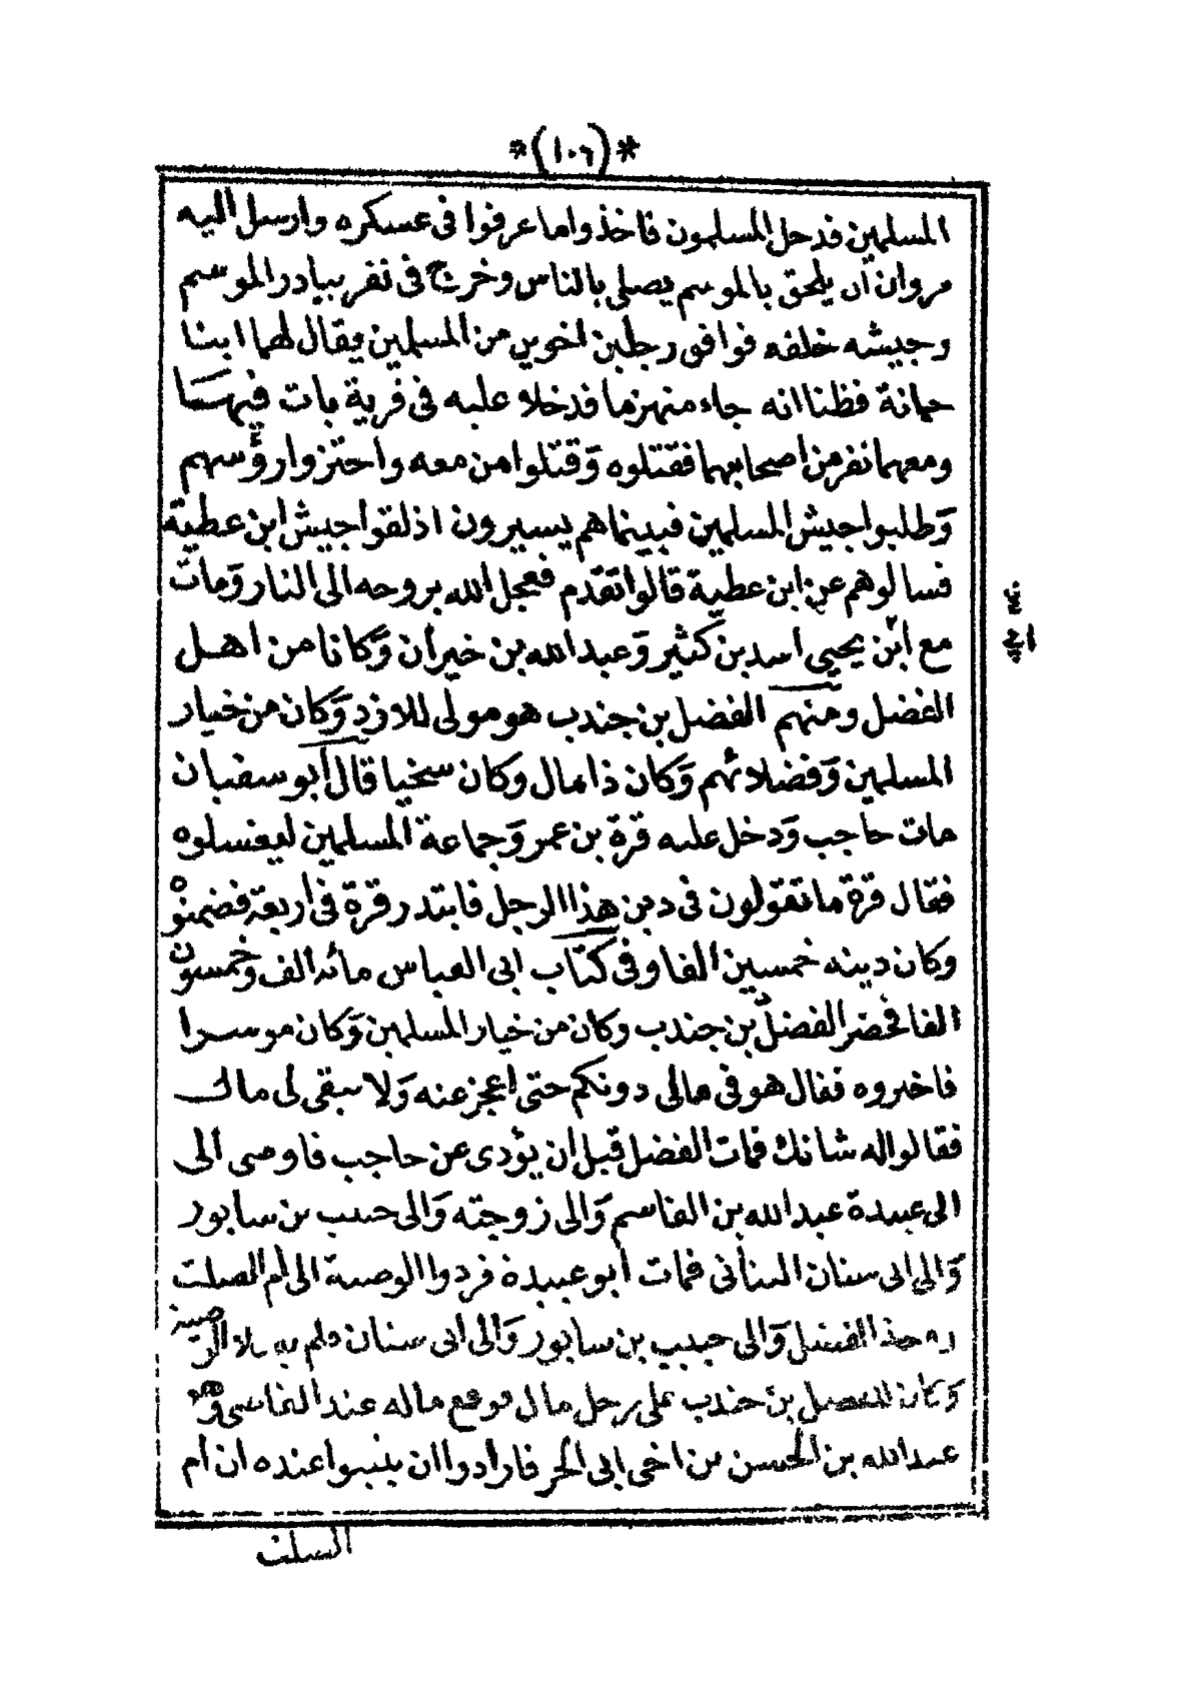 *(١٠٦)*
المسلمين فدخل المسلمون فاخذوا ما عرفوا فى عسكره وارسل اليه
مروان أن يلحق بالموسم يصلي بالناس وخرج فى نفر يبادر الموسم
وجيشه خلفه فوافق رجلين اخوين من المسلمين يقال لهما ابنا
حمانة فظنا انه جاء منهزما فدخلا عليه فى قرية بات فيهـا
ومعهما نفر من اصحابهما فقتلوه وَقتلوا من معه واحتزوا رؤسهم
وَطلبوا جيش المسلمين فبينما هم يسيرون اذ لقوا جيش ابن عطية
فسالوهم عن ابن عطية قالوا تقدم فعجل الله بروحه الى النار وَمات
مع ابن يحيى اسد بن كثير وَعبد الله بن خيران وَكانا من اهـل
الفضل ومنهم الفضل بن جندب هو مولى للازد وَكان من خيار
المسلمين وَفضلائهم وَكان ذا مال وكان سخيا قال أبو سفيان
مات حاجب وَدخل عليه قرة بن عمر وَجماعة المسلمين ليغسلوه
فقال قرة ما تقولون فى دين هذا الرجل فابتدر قرة فى اربعة فضمنوْه
وكان دينه خمسين الفا وفى كتاب ابى العباس مائه الف وخمسون
الفا فحضر الفضل بن جندب وكان من خيار المسلمين وَكان موسرا
فاخبروه فقال هو فى مالى دونكم حتى اعجز عنه وَلا يبقى لى مال
فقالوا له شانك فمات الفضل قبل ان يؤدى عن حاجب فاوصى الى
ابى عبيدة عبد الله بن القاسم وَالى زوجته وَالى حبيب بن سابور
وَالى ابى سنان فمات أبو عبيدة فردوا الوصية الى ام الصلت
الفضل وَالى حبيب بن سابور وَالى ابى سنان
وَكان للفضل بن جندب على رجل مال فوقع ماله عند القاسى وَهو
عبد الله بن الحسن بن اخى ابى الحر فارادوا ان يثبتوا عنده ان ام
الصلت